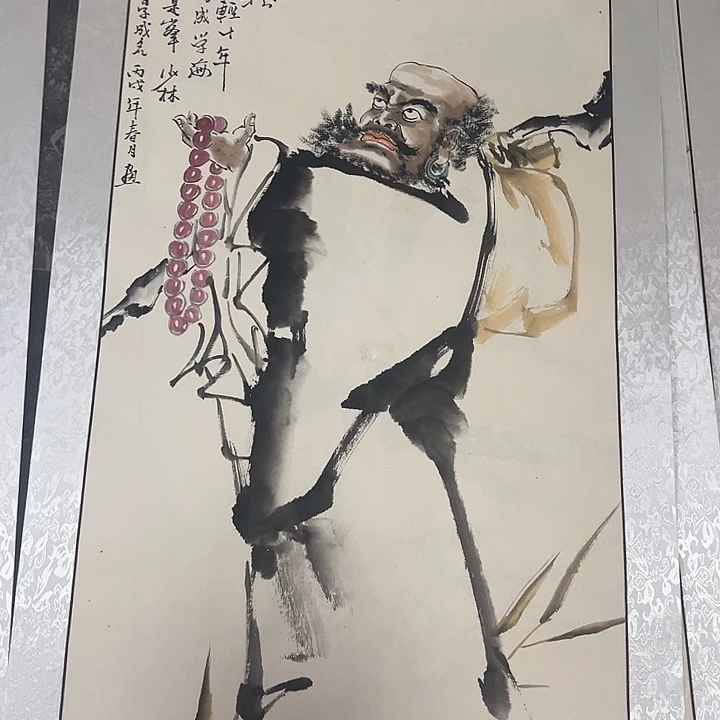 輕十年
成学海
是峯少林
子成名丙戌年春月画